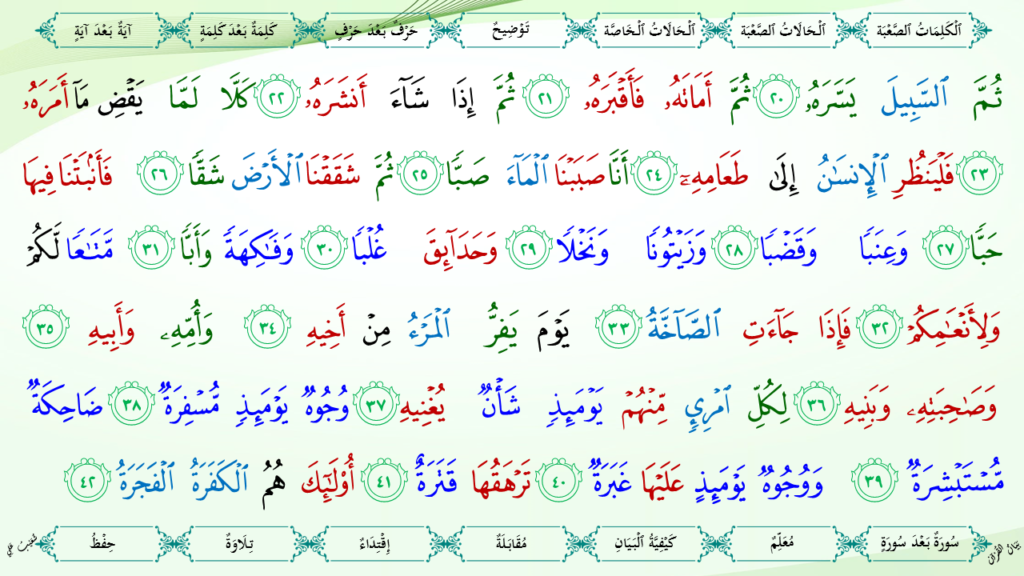 ٱلْكَلِمَاتُ ٱلصَّعْبَة ٱلْحَالَاتُ ٱلصَّعْبَة ٱلْحَالَاتُ ٱلْخَاصَّة تَوْضِيحٌ حَرْفٌ بَعْدَ حَرْفٍ كَلِمَةٌ بَعْدَ كَلِمَةٍ آيَةٌ بَعْدَ آيَةٍ
ثُمَّ ٱلسَّبِيلَ يَسَّرَهُۥ ٢٠ ثُمَّ أَمَاتَهُۥ فَأَقْبَرَهُۥ ٢١ ثُمَّ إِذَا شَآءَ أَنشَرَهُۥ ٢٢ كَلَّا لَمَّا يَقْضِ مَآ أَمَرَهُۥ
٢٣ فَلْيَنظُرِ ٱلْإِنسَٰنُ إِلَىٰ طَعَامِهِۦٓ ٢٤ أَنَّا صَبَبْنَا ٱلْمَآءَ صَبًّا ٢٥ ثُمَّ شَقَقْنَا ٱلْأَرْضَ شَقًّا ٢٦ فَأَنۢبَتْنَا فِيهَا
حَبًّا ٢٧ وَعِنَبًا وَقَضْبًا ٢٨ وَزَيْتُونًا وَنَخْلًا ٢٩ وَحَدَآئِقَ غُلْبًا ٣٠ وَفَٰكِهَةً وَأَبًّا ٣١ مَّتَٰعًا لَّكُمْ
وَلِأَنْعَٰمِكُمْ ٣٢ فَإِذَا جَآءَتِ ٱلصَّآخَّةُ ٣٣ يَوْمَ يَفِرُّ ٱلْمَرْءُ مِنْ أَخِيهِ ٣٤ وَأُمِّهِۦ وَأَبِيهِ ٣٥
وَصَٰحِبَتِهِۦ وَبَنِيهِ ٣٦ لِكُلِّ ٱمْرِئٍ مِّنْهُمْ يَوْمَئِذٍ شَأْنٌ يُغْنِيهِ ٣٧ وُجُوهٌ يَوْمَئِذٍ مُّسْفِرَةٌ ٣٨ ضَاحِكَةٌ
مُّسْتَبْشِرَةٌ ٣٩ وَوُجُوهٌ يَوْمَئِذٍ عَلَيْهَا غَبَرَةٌ ٤٠ تَرْهَقُهَا قَتَرَةٌ ٤١ أُو۟لَٰٓئِكَ هُمُ ٱلْكَفَرَةُ ٱلْفَجَرَةُ ٤٢
سُورَةٌ بَعْدَ سُورَةٍ مُعَلِّمٌ كَيْفِيَّةُ ٱلْبَيَانِ مُقَابَلَةٌ إِقْتِدَاءٌ تِلَاوَةٌ حِفْظٌ
بَيَانُ القُرْآن